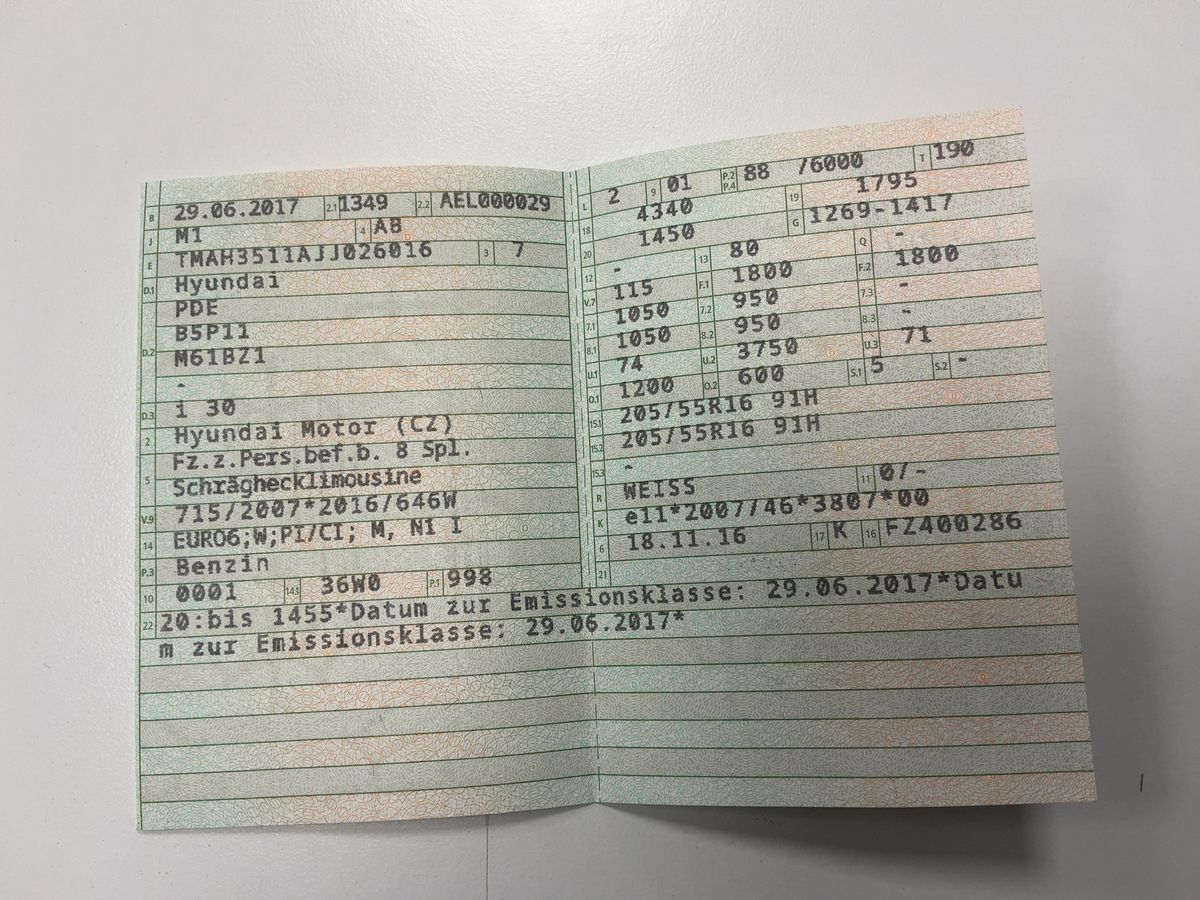 B 29.06.2017 2.1 1349 2.2 AEL000029
J M1 4 AB
E TMAH3511AJJ026016 3 7
D.1 Hyundai
PDE
B5P11
D.2 M61BZ1
-
D.3 i 30
2 Hyundai Motor (CZ)
Fz.z.Pers.bef.b. 8 Spl.
5 Schräghecklimousine
V.9 715/2007*2016/646W
14 EURO6;W;PI/CI; M, N1 I
P.3 Benzin
10 0001 14.1 36W0 P.1 998
L 2 9 01 P.2 P.4 88 /6000 T 190
18 4340 19 1795
20 1450 G 1269-1417
12 - 13 80 Q -
V.7 115 F.1 1800 F.2 1800
7.1 1050 7.2 950 7.3 -
8.1 1050 8.2 950 8.3 -
U.1 74 U.2 3750 U.3 71
O.1 1200 O.2 600 S.1 5 S.2 -
15.1 205/55R16 91H
15.2 205/55R16 91H
15.3 -
R WEISS 11 0/-
K e11*2007/46*3807*00
6 18.11.16 17 K 16 FZ400286
21
22 20:bis 1455*Datum zur Emissionsklasse: 29.06.2017*Datu
m zur Emissionsklasse: 29.06.2017*